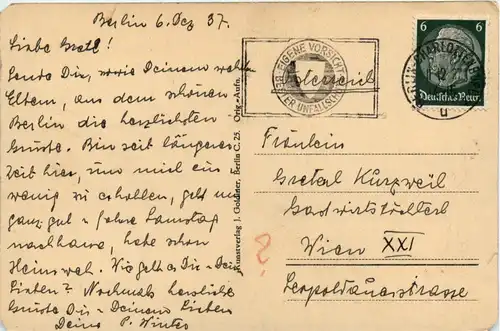 Berlin 6. Dez 37.
Liebe Gretl!
Sende Dir, sowie Deinem
Eltern, aus dem schönen
Berlin die herzlichsten
Grüße. Bin seit längerer
Zeit hier, um mich ein
wenig zu erhollen, geht mir
ganz gut u fahre Samstag
nachhause, habe schon
Heimweh. Wie geht es Dir u Dein
Lieben? Nochmals herzliche
Grüße Dir u Deinen Lieben
Deine P. Winter
Kunstverlag J. Goldiner, Berlin C. 25. Orig.-Aufn.
EIGENE VORSICHT
DER BESTE UNFALLSCHUTZ
Österreich
BERLIN-CHARLOTTENBURG
u
6 6
Deutsches Reich
Fräulein
Gretal Kurzweil
Gastwirtstochter
Wien XXI
Leopoldauerstrasse